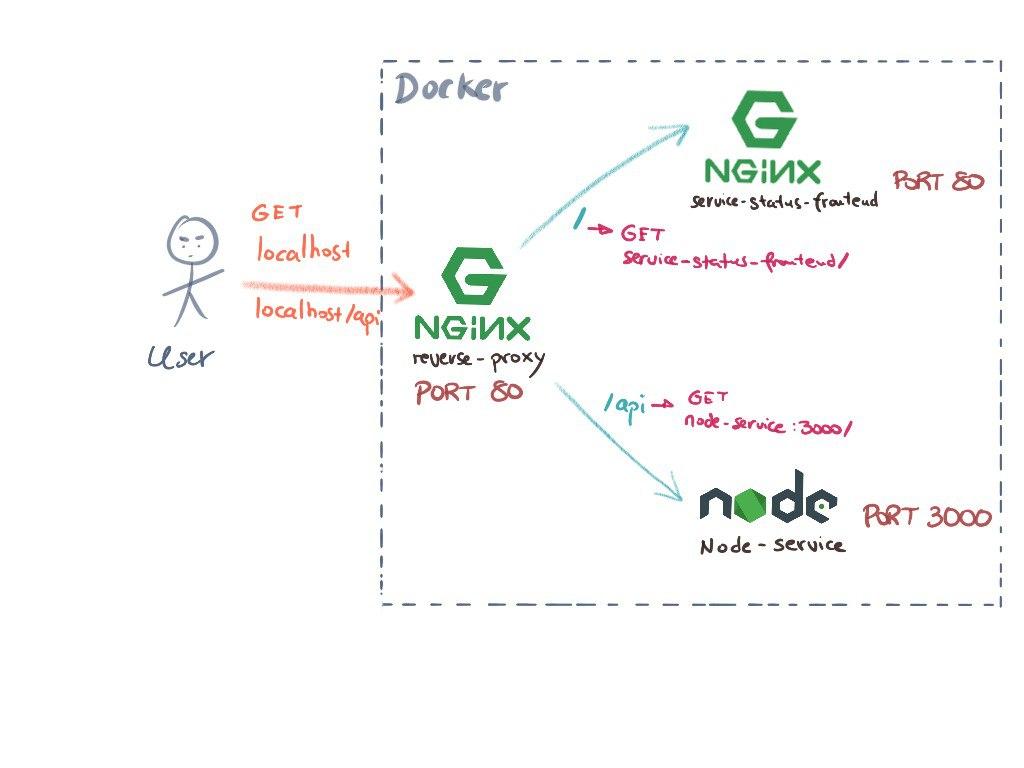 Docker
GET
localhost
localhost/api
User
NGiNX
reverse-proxy
PORT 80
NGiNX
service-status-frontend
PORT 80
/ → GET
service-status-frontend/
/api → GET
node-service:3000/
node
Node-service
PORT 3000